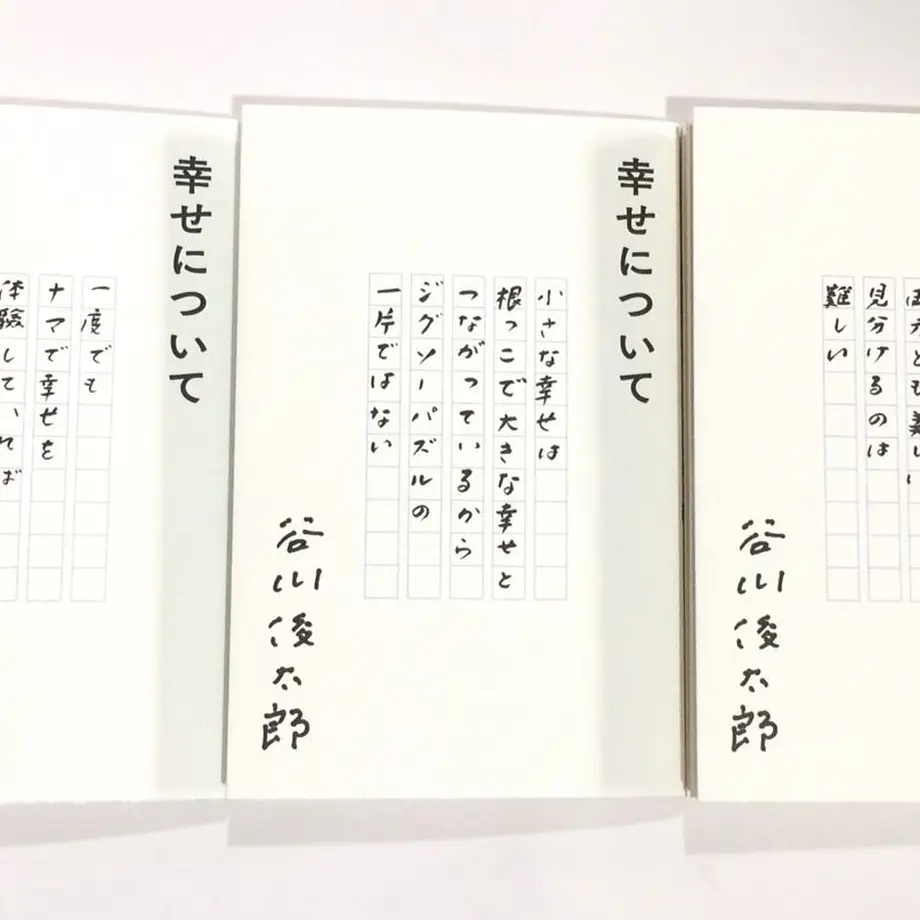 幸せについて
一度でも
ナマで幸せを
体験していれば
幸せについて
小さな幸せは
根っこで大きな幸せと
つながっているから
ジグソーパズルの
一片ではない
谷川俊太郎
見分けるのは
難しい
谷川俊太郎